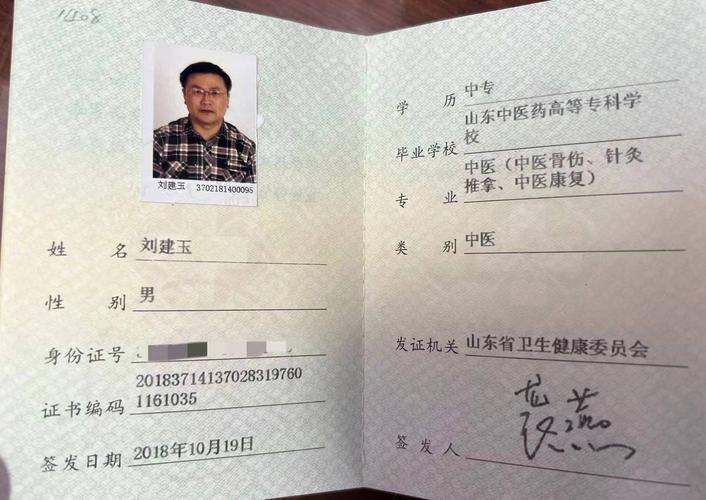 刘建玉 3702181400095
姓名 刘建玉
性别 男
身份证号
证书编码 20183714137028319760
1161035
签发日期 2018年10月19日
学历 中专
毕业学校 山东中医药高等专科学
校
专业 中医（中医骨伤、针灸
推拿、中医康复）
类别 中医
发证机关 山东省卫生健康委员会
签发人